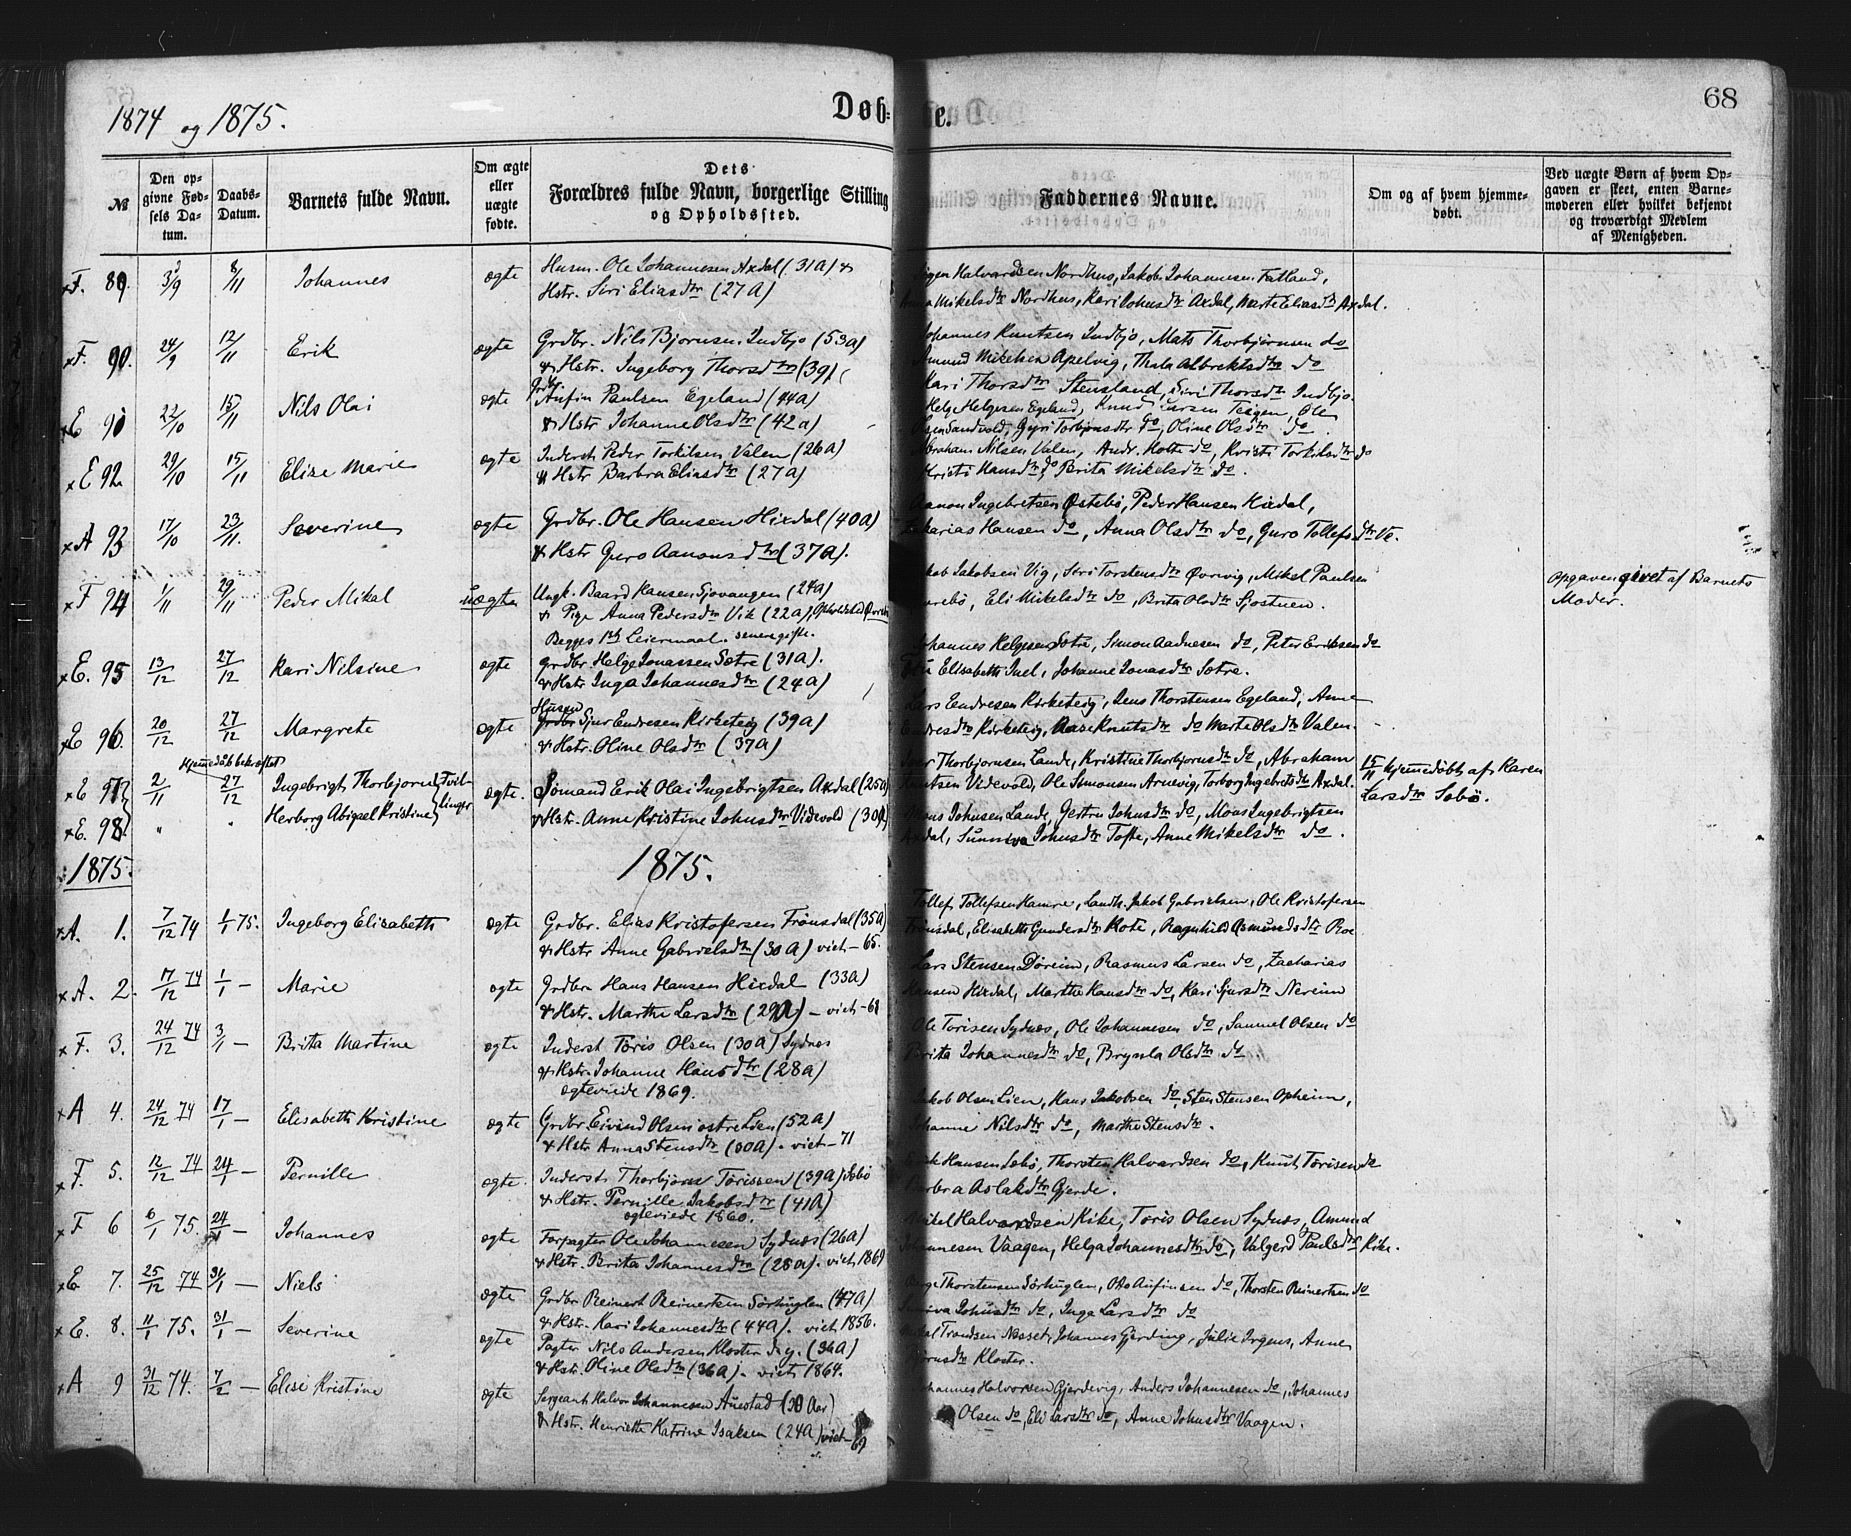 1874 og 1875.
Døb-
te.
68
№
Den op-
givne Fød-
sels Da-
tum.
Daabs-
Datum.
Barnets fulde Navn.
Om ægte
eller
uægte
fødte.
Dets
Forældres fulde Navn, borgerlige Stilling
og Opholdssted.
Faddernes Navne.
Om og af hvem hjemme-
døbt.
Ved uægte Børn af hvem Op-
gaven er skeet, enten Barne-
moderen eller hvilket bekjendt
og troværdigt Medlem
af Menigheden.
F. 89. 3/9 8/11 Johannes ægte Husm. Ole Johannesen Axdal (31 A) &
Hstr. Siri Eliasdtr (27 A)
Halvardsen Nordhus, Jakob Johannesen Fatland,
Mikelsdtr Nordhus, Kari Johnsdtr Axdal, Marte Eliasdtr Axdal.
F. 90. 24/9 12/11 Erik ægte Grdbr. Nils Bjornsen Indbjo (53 a)
& Hstr. Ingeborg Thorsdtr (39)
Johannes Knutsen Indbjo, Mats Thorbjørnsen do
Amund Mikelsen Apelvig, Thala Albrektsdtr do
Kari Thorsdtr Stensland, Siri Thorsdtr Indbjo.
E 91 22/10 15/11 Nils Olai ægte Grdbr. Anfin Paulsen Egeland (44 a)
& Hstr Johanne Olsdtr (42 a)
Helge Helgesen Egeland, Knud Larsen Teigen, Ole
Olsen Sandvold, Gyri Torbjørnsdtr do, Oline Olsdtr do.
E 92 29/10 15/11 Elise Marie ægte Inderst Peder Torkilsen Valen (26 a)
& Hstr Barbra Eliasdtr (27 a)
Abraham Nilsen Valen, Andr. Holte do, Kristi Torkilsdtr do
Kristi Hansdtr do, Brita Mikelsdtr do.
A 93 17/10 23/11. Severine ægte Grdbr. Ole Hansen Hixdal (40 a)
& Hstr Guro Aanonsdtr (37 A).
Aanon Ingebretsen Østebø, Peder Hansen Hixdal,
Zakarias Hansen do, Anna Olsdtr do, Guro Tollefsdtr
F 94 1/11 29/11 Peder Mikal uægte Ungk. Baard Hansen Sjovangen (24 a)
& Pige Anna Pedersdtr Vik (22 a), Opholdsted
Begges 1ste Leiermaal. senere gifte.
Jakob Jakobsen Vig, Siri Torstensdtr Øvrevig, Mikel Paulsen
Eli Mikelsdtr do, Brita Olsdtr Sjostuen.
Opgaven givet af Barnets
Moder.
E. 95 13/12 27/12 Kari Nilsine ægte Grdbr. Helge Jonassen Sætre (31 a).
& Hstr Inga Johannesdtr (24 A)
Johannes Helgesen Sætre, Simon Aadnesen do, Peter Eriksen do
Elisabeth Juel, Johanne Jonasdtr Sætre.
E 96. 20/12 27/12 Margrete ægte Husm Sjur Endresen Kirketeig (39 a)
& Hstr. Oline Olsdtr (37 a)
Lars Endresen Kirketeig, Jens Thorstensen Egeland, Anne
Endresdtr Kirketeig, Aase Knutsdtr do Marte Olsdtr Valen.
Hjemmedaab bekræftet
E 97 2/11 27/12 Ingebrigt Thorbjørn } Tvil- ægte. Sømand Erik Olai Ingebrigtsen Axdal (25 a)
E. 98 " " Herborg Abigael Kristine } linger & Hstr. Anne Kristine Johnsdtr Videvold (30 A)
Thorbjornsen Lande, Kristine Thorbjornsdtr do, Abraham
Knutsen Videvold, Ole Simonsen Arnevig, Torborg Ingebretsdtr Axdal.
Mons Johnsen Lande, Gertru Johnsdtr do, Mons Ingebrigtsen
Axdal, Sunniva Johnsdtr Tofte, Anne Mikelsdtr do.
15/11 hjemmedøbt af Karen
Larsdtr Sæbø.
1875.
1875.
A. 1. 7/12 74 1/1 75. Ingeborg Elisabeth ægte Grdbr. Elias Kristofersen Frønsdal (35 A)
& Hstr Anne Gabrielsdtr (30 A) viet – 65.
Tollef Tollefsen Hamre, Landh. Jakob Gabrielsen, Ole Kristofersen
Frønsdal, Elisabeth Gundersdtr Kote, Ragnhild Osmundsdtr Roe
A. 2. 17/12 74 1/1 – Marie ægte Grdbr Hans Hansen Hixdal (33 a)
& Hstr. Marthe Larsdtr (29 A) – viet – 68
Lars Stensen Døreim, Rasmus Larsen do, Zacharias
Hansen Hixdal, Marthe Hansdtr do, Kari Sjursdtr Nereim
F. 3. 24/12 74 3/1 – Brita Martine ægte Inderst Tøris Olsen (30 a) Sydnæs
& Hstr. Johanne Hansdtr (28 a)
ægteviede 1869.
Ole Torisen Sydnæs, Ole Johannesen do, Samuel Olsen do
Brita Johannesdtr do, Brynla Olsdtr do
A 4. 24/12 74 17/1 – Elisabeth Kristine ægte Grdbr. Eivind Olsen (52 a)
& Hstr Anna Stensdtr (30 A). viet – 71
Jakob Olsen Lien, Hans Jakobsen do, Sten Stensen Opheim,
Johanne Nilsdtr do, Marthe Stensdtr.
F. 5. 12/12 74 24/1 – Pernille ægte. Inderst Thorbjørn Tørissen (39 a) Sæbø
& Hstr. Pernille Jakobsdtr (41 A)
ægteviede 1860.
Erik Hansen Sæbø, Thorsten Halvardsen do, Knut Tørisen do
Barbra Aslakdtr Gjerde.
F 6 6/1 75. 24/1 – Johannes ægte Forpagter Ole Johannesen Sydnæs (26 a)
& Hstr. Brita Johannesdtr (28 a). viet 1869
Mikel Halvordsen Kike, Tøris Olsen Sydnæs, Amund
Johannesen Vaagen, Helga Johannesdtr do, Valgerd Paulsdtr Kike.
E 7. 25/12 74 31/1 – Niels ægte Grdbr Reinert Reinertsen Sørhuglen (47 A)
& Hstr. Kari Johannesdtr (44 A). viet 1856.
Thorstensen Sørhuglen, Otto Anfinsen do, Thorsten Reinertsen do
Sunniva Johnsdtr do, Inga Larsdtr do
E. 8. 11/1 75. 31/1 – Severine ægte Pagter Nils Andersen Kloster (36 A)
& Hstr. Oline Olsdtr (36 A). viet 1864.
Trondsen Næsset, Johannes Gjerding, Julie Irgens, Anne
Kloster.
A 9 31/12 74. 7/2 – Elise Kristine ægte Sergeant Halvor Johannesen Auestad (30 Aar)
& Hstr. Henriette Katrine Isaksen (24 A) viet – 69
Johannes Halvorsen Gjerdevig, Anders Johannesen do, Johannes
Olsen do, Eli Larsdtr do, Anne Johnsdtr Vaagen.